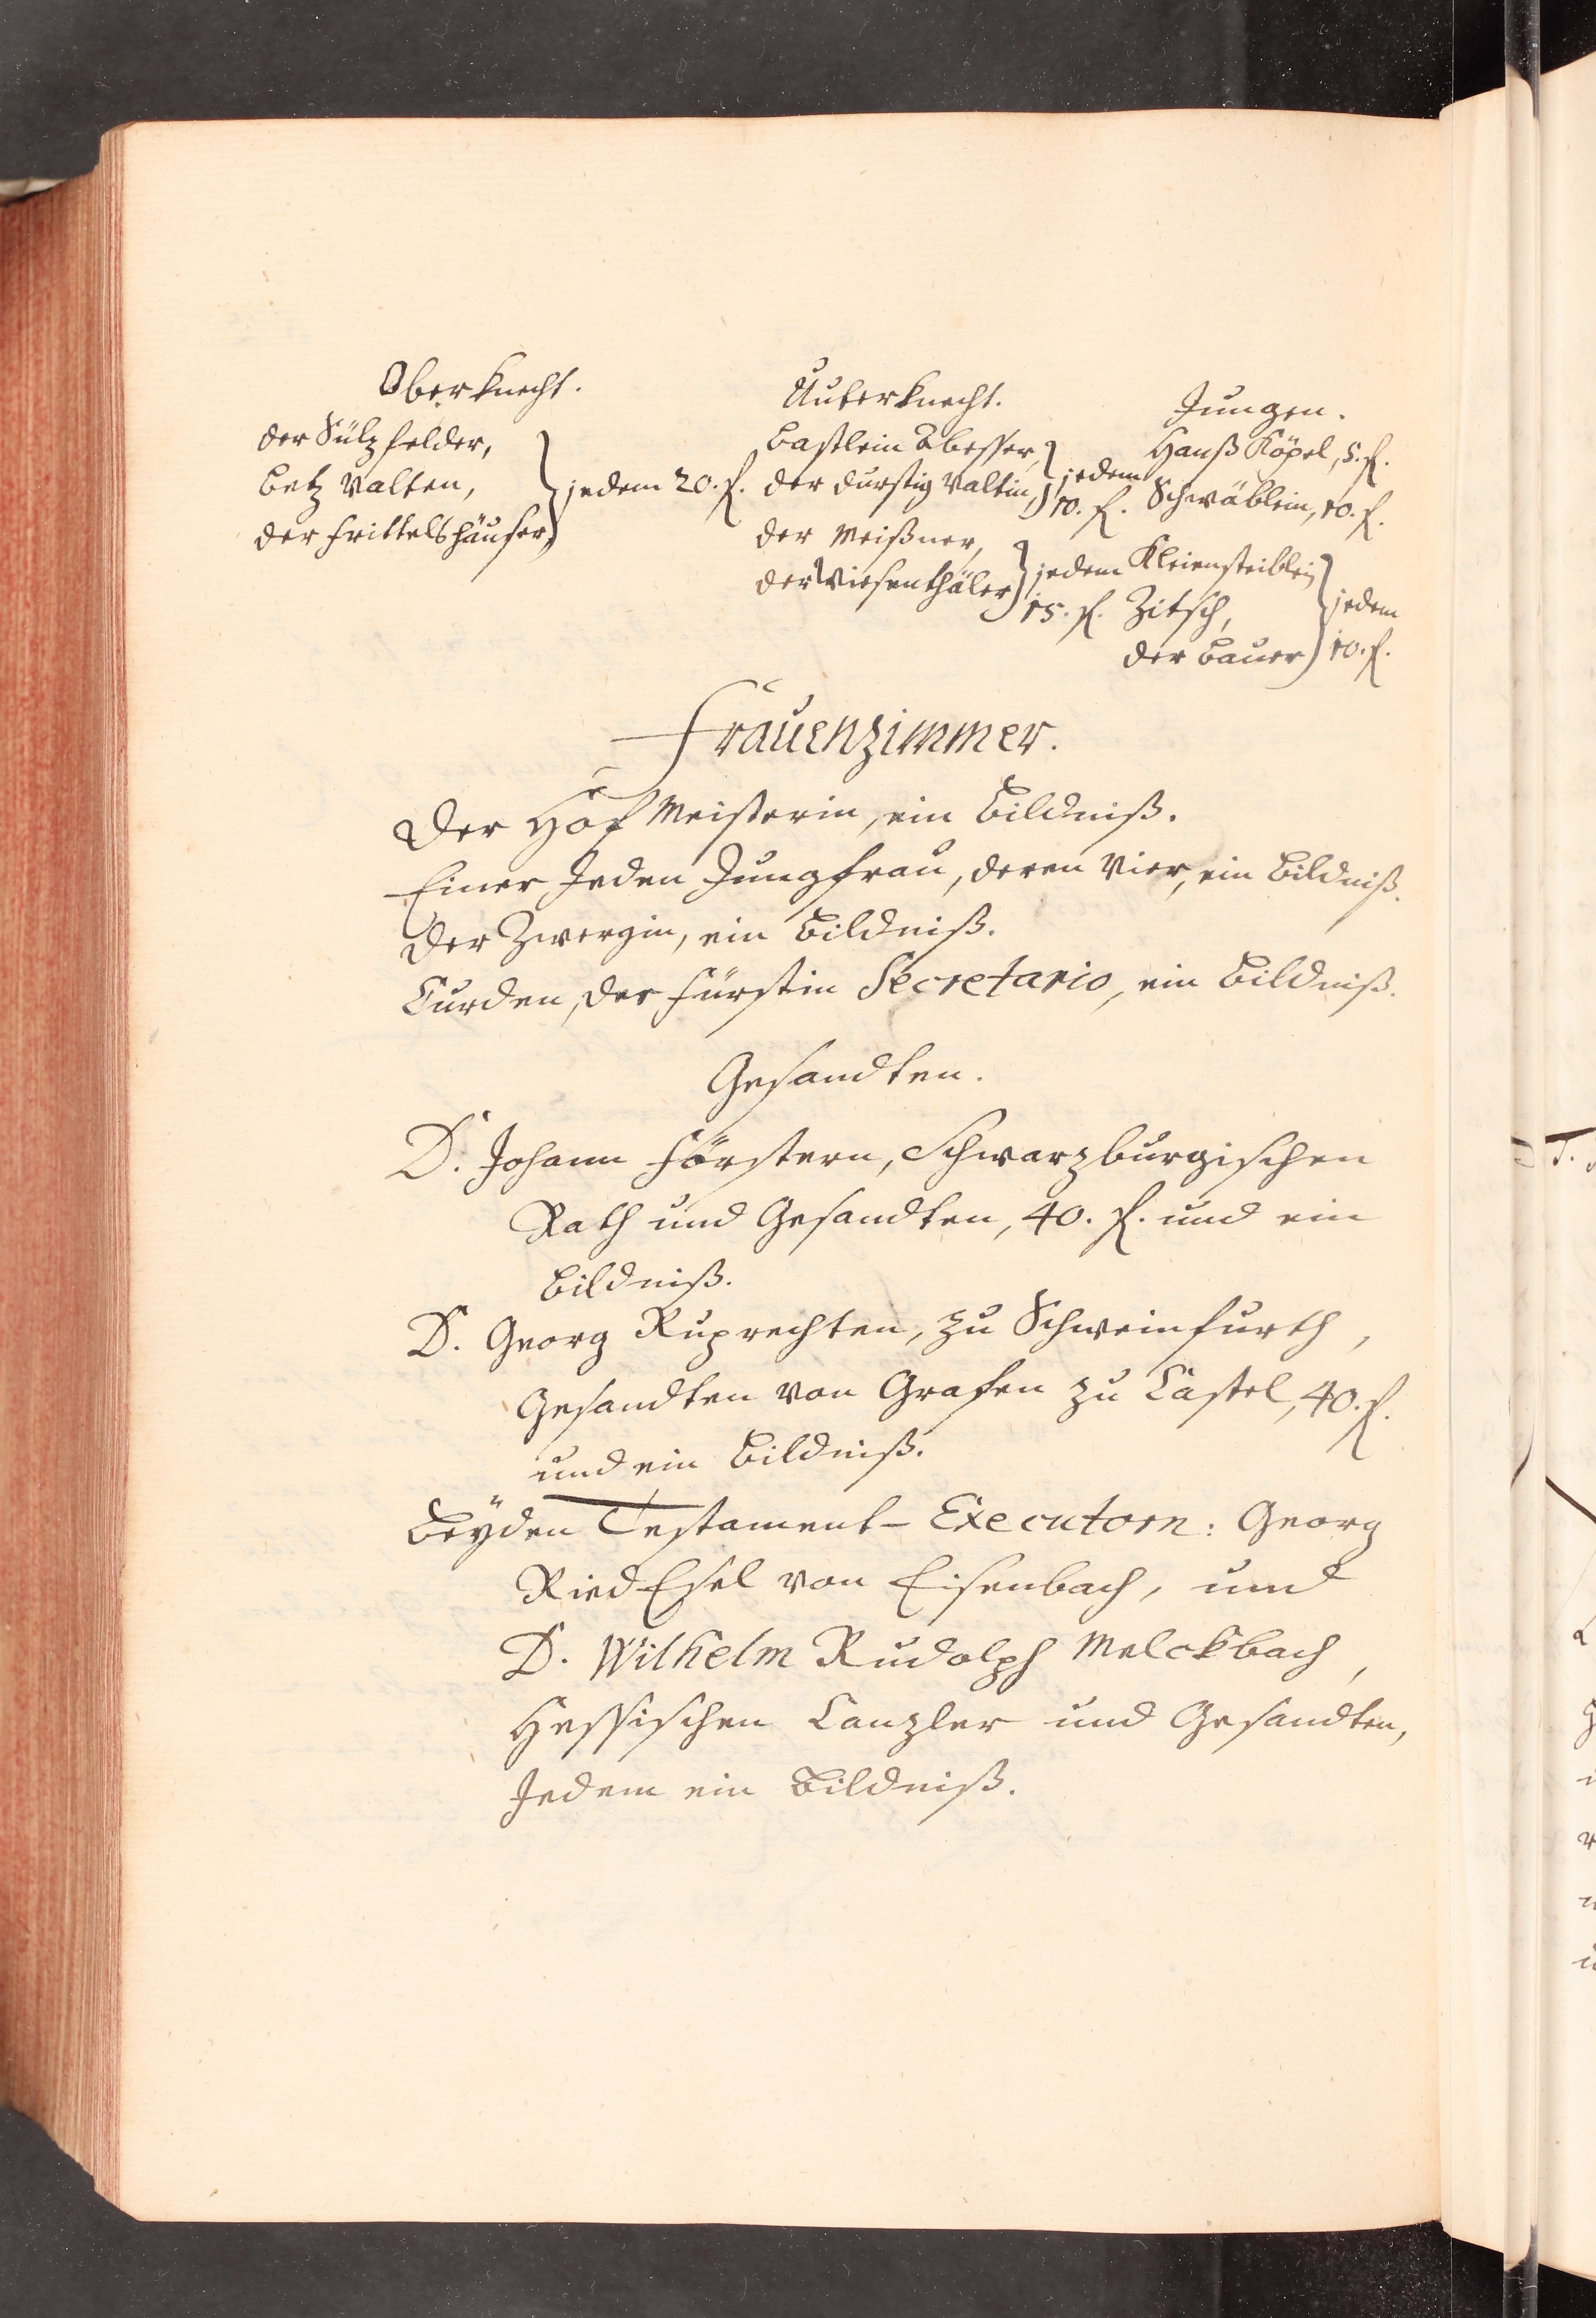 Oberknecht.
der Sülzfelder,
Betz Valten, } jedem 20. f.
der Frittelshäuser,
Unterknecht.
Bastlein
der durstig Valtin, } jedem 10. f.
der Meißner,
der Wiesenthäler } jedem 15. f.
Jungen.
Hanß Köpel, 5. f.
Schwäblein, 10. f.
Kleiensteiblein
Zitsch, } jedem
der Bauer 10. f.
Frauenzimmer.
Der Hof Meisterin, ein Bildniß.
Einer Jeden Jungfrau, deren Vier, ein Bildniß.
Der Zwergin, ein Bildniß.
Curden, der Fürstin Secretario, ein Bildniß.
Gesandten.
D. Johann Förstern, Schwarzburgischen
Rath und Gesandten, 40. f. und ein
Bildniß.
D. Georg Ruprechten, zu Schweinfurth,
Gesandten von Grafen zu Castel, 40. f.
und ein Bildniß.
Beÿden Testament-Executorn: Georg
Ried Esel von Eisenbach, und
D. Wilhelm Rudolph Melckbach,
Hessischen Canzler und Gesandten,
Jedem ein Bildniß.